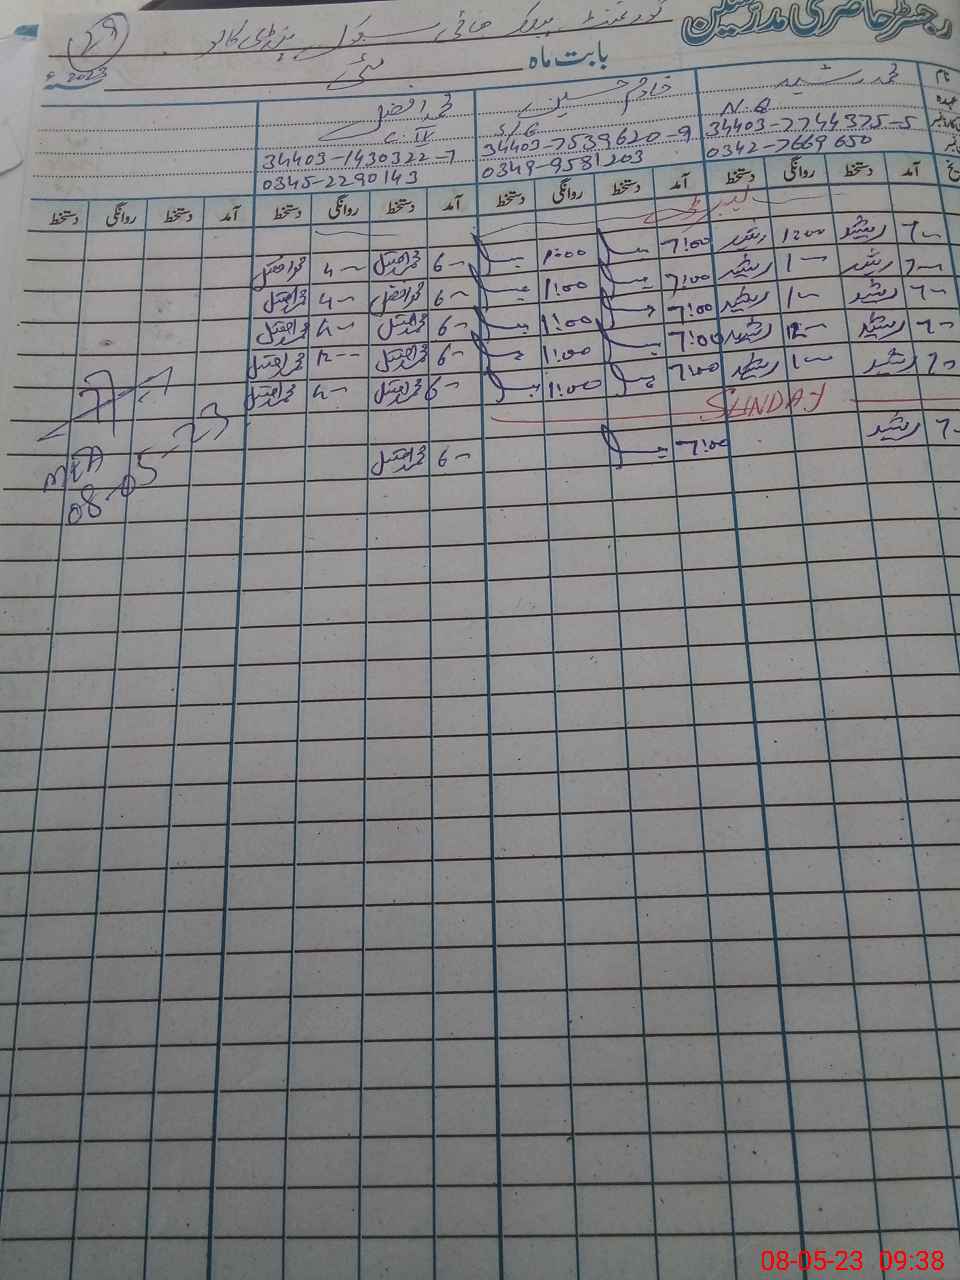 رجسٹر حاضری مدرسین
29
گورنمنٹ ہائی سکول
بابت ماہ مئی 2023ء
نام محمد رشید خادم حسین محمد افضل
عہدہ N.Q S/G C.IV
34403-7744375-5 34403-7539620-9 34403-1430322-7
0342-7669650 0349-9581203 0345-2290143
آمد دستخط روانگی دستخط آمد دستخط روانگی دستخط آمد دستخط روانگی دستخط آمد دستخط روانگی دستخط
لیبر ڈے
7— رشید 1200 رشید 7:00 1:00 6— محمد افضل 4— محمد افضل
7— رشید 1— رشید 7:00 1:00 6— محمد افضل 4— محمد افضل
7— رشید 1— رشید 7:00 1:00 6— محمد افضل 4— محمد افضل
7— رشید 12— رشید 7:00 1:00 6— محمد افضل 12— محمد افضل
7— رشید 1— رشید 7:00 1:00 6— محمد افضل 4— محمد افضل
SUNDAY
7— رشید 7:00 6— محمد افضل
MEA
08-05-23
08-05-23 09:38